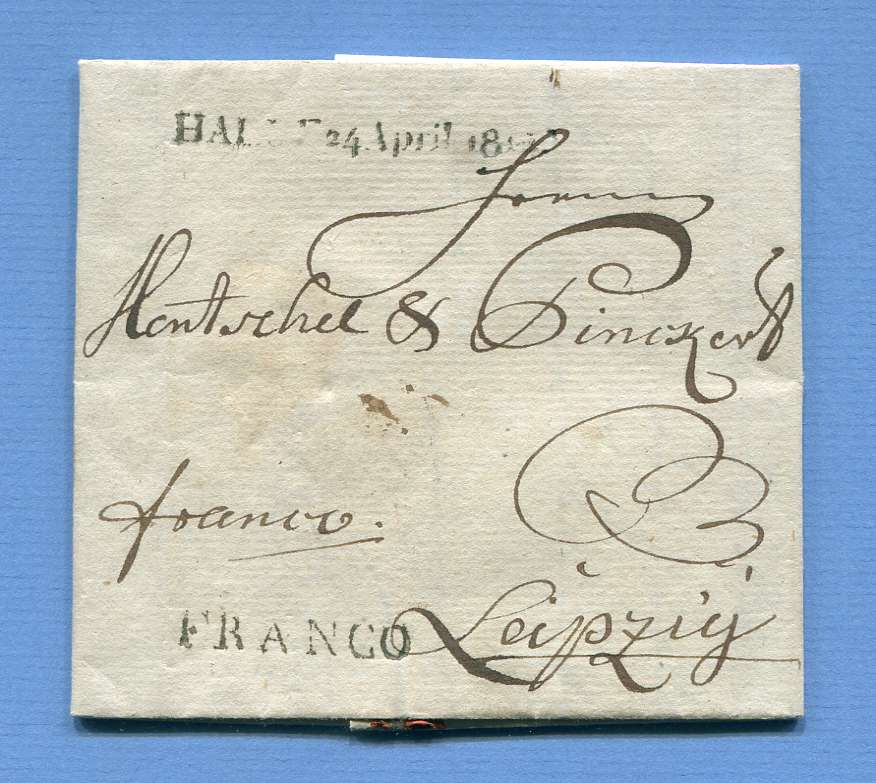 HALLE 24 April
Herren
Hentschel & Pinckert
franco.
FRANCO
Leipzig